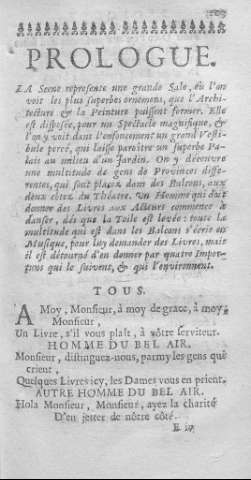 PROLOGUE.
LA Scene represente une grande Sale, où l'on
voit les plus superbes ornemens, que l'Archi-
tecture & la Peinture puissent former. Elle
est disposée, pour un Spectacle magnifique, &
l'on y voit dans l'enfoncement un grand Vesti-
bule percé, qui laisse paroître un superbe Pa-
lais au milieu d'un Jardin. On y découvre
une multitude de gens de Provinces diffe-
rentes, qui sont placez dans des Balcons, aux
deux côtez du Théatre. Un Homme qui doit
donner des Livres aux Acteurs commence à
danser, dés que la Toile est levée: toute la
multitude qui est dans les Balcons s'écrie en
Musique, pour luy demander des Livres, mais
il est détourné d'en donner par quatre Impor-
tuns qui le suivent, & qui l'environnent.
TOUS.
A Moy, Monsieur, à moy de grace, à moy,
Monsieur,
Un Livre, s'il vous plaît, à nôtre serviteur.
HOMME DU BEL AIR.
Monsieur, distinguez-nous, parmy les gens qui
crient,
Quelques Livres icy, les Dames vous en prient.
AUTRE HOMME DU BEL AIR.
Hola Monsieur, Monsieur, ayez la charité
D'en jetter de nôtre côté.